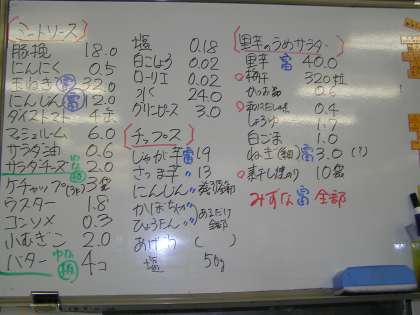 ミートソース
豚挽 18.0
にんにく 0.5
玉ねぎ 富 32.0
にんじん 富 12.0
ダイストマト 4缶
マシュルーム 6.0
サラダ油 0.6
サラダチーズ 2.0
ケチャップ(3k) 3本
ウスター 1.8
コンソメ 0.3
小むぎこ 2.0
バター 4コ
塩 0.18
白こしょう 0.02
ローリエ 0.02
水 24.0
グリンピース 3.0
チップス
じゃが芋 富 19
さつま芋 〃 13
にんじん 〃
かぼちゃ 〃 あるだけ
ひょうたん 〃 全部
あげ油 ( )
塩 50g
里芋のうめサラダ
里芋 富 40.0
梅干 320粒
かつお節 0.6
0.4
しょうゆ 1.7
白ごま 1.0
ねぎ(細) 富 3.0 (?)
蒸し 10
みずな 富 全部